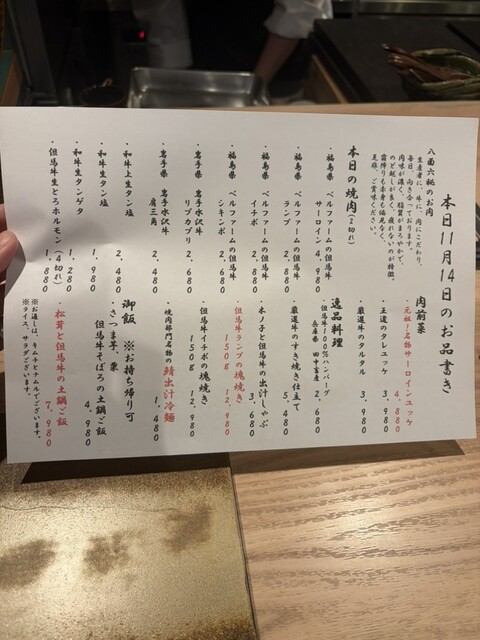 本日11月14日のお品書き
八画六秘のお肉
生産者に、牛に、肉にこだわり、
毎日、向き合っております。
肉味が濃く、脂質がまろやかで、
のど越しが良く、疲れないのが特徴。
霜降りも赤身も偏見なく、
是非、ご賞味ください。
本日の焼肉(2切れ)
・福島県 ベルファームの但馬牛
サーロイン 4,980
・福島県 ベルファームの但馬牛
ランプ 2,880
・福島県 ベルファームの但馬牛
イチボ 2,880
・福島県 ベルファームの但馬牛
シキンボ 2,680
・岩手県 岩手水沢牛
リブカブリ 2,680
・岩手県 岩手水沢牛
肩三角 2,480
・和牛上生タン塩 2,480
・和牛生タン塩 1,980
・和牛生タンゲタ 1,280
・但馬牛生とろホルモン(4切れ) 1,880
肉前菜
・元祖!名物サーロインユッケ 4,880
・王道のタレユッケ 3,980
・厳選牛のタルタル 3,980
逸品料理
・但馬牛100%ハンバーグ
兵庫県 田中畜産 2,680
・厳選牛のすき焼き仕立て 5,480
・木ノ子と但馬牛の出汁しゃぶ 3,680
・但馬牛ランプの塊焼き
150g 12,980
・但馬牛イチボの塊焼き
150g 12,980
・焼肉部門名物の鯖出汁冷麺 1,480
御飯 ※お持ち帰り可
・さつま芋、栗
但馬牛そぼろの土鍋ご飯 4,980
・松茸と但馬牛の土鍋ご飯 7,980
※お通しは、キムチとナムルでございます。
※ライス、サラダございます。